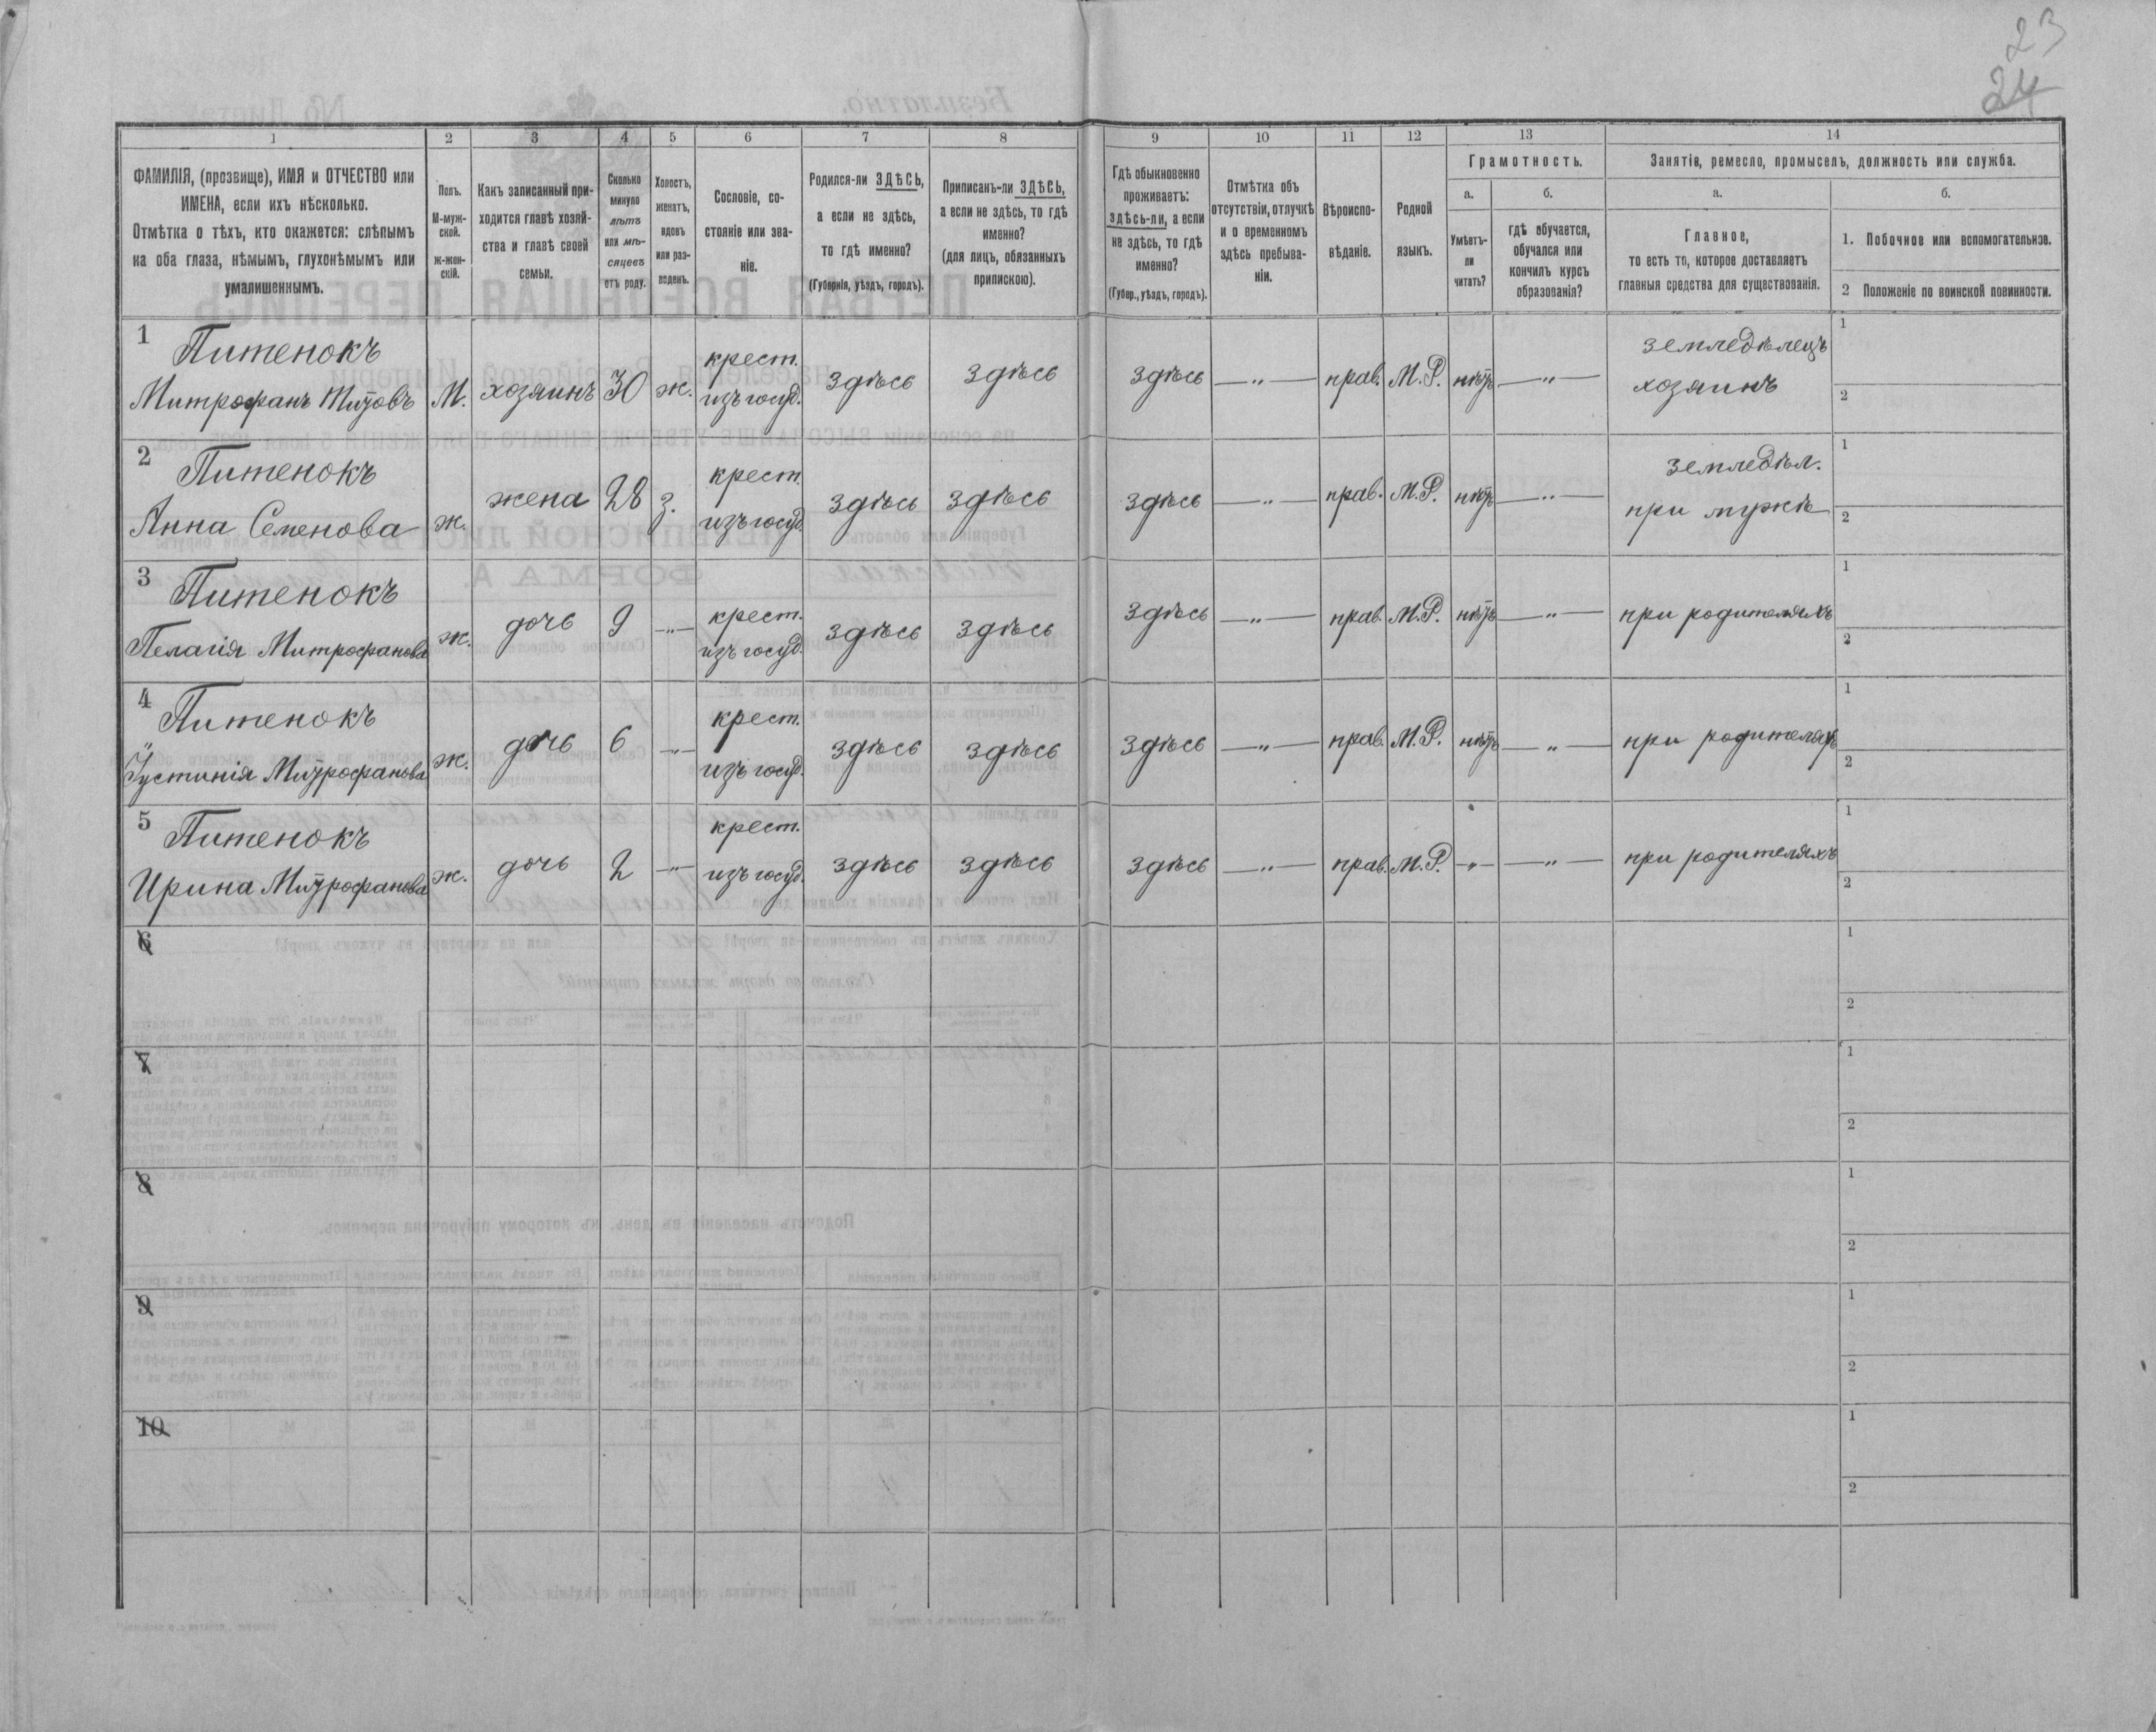 23
24
1 2 3 4 5 6 7 8 9 10 11 12 13 14
ФАМИЛІЯ, (прозвище), ИМЯ и ОТЧЕСТВО или
ИМЕНА, если ихъ нѣсколько.
Отмѣтка о тѣхъ, кто окажется: слѣпымъ
на оба глаза, нѣмымъ, глухонѣмымъ или
умалишеннымъ.
Полъ.
М-муж-
ской.
ж-жен-
скій.
Какъ записанный при-
ходится главѣ хозяй-
ства и главѣ своей
семьи.
Сколько
минуло
лѣтъ
или мѣ-
сяцевъ
отъ роду.
Холостъ,
женатъ,
вдовъ
или раз-
веденъ.
Сословіе, со-
стояніе или зва-
ніе.
Родился-ли ЗДѢСЬ,
а если не здѣсь,
то гдѣ именно?
(Губернія, уѣздъ, городъ).
Приписанъ-ли ЗДѢСЬ,
а если не здѣсь, то гдѣ
именно?
(для лицъ, обязанныхъ
припискою).
Гдѣ обыкновенно
проживаетъ:
здѣсь-ли, а если
не здѣсь, то гдѣ
именно?
(Губер., уѣздъ, городъ).
Отмѣтка объ
отсутствіи, отлучкѣ
и о временномъ
здѣсь пребыва-
ніи.
Вѣроиспо-
вѣданіе.
Родной
языкъ.
Грамотность.
а.
Умѣетъ-
ли
читать?
б.
гдѣ обучается,
обучался или
кончилъ курсъ
образованія?
Занятіе, ремесло, промыселъ, должность или служба.
а.
Главное,
то есть то, которое доставляетъ
главныя средства для существованія.
б.
1. Побочное или вспомогательное.
2 Положеніе по воинской повинности.
1 Питенокъ крест. земледѣлецъ 1
Митрофанъ Титовъ М. хозяинъ 30 ж. изъ госуд. здѣсь здѣсь здѣсь —„— прав. М.Р. нѣтъ —„— хозяинъ 2
2 Питенокъ крест. земледѣл. 1
Анна Семенова ж. жена 28 з. изъ госуд. здѣсь здѣсь здѣсь —„— прав. М.Р. нѣтъ —„— при мужѣ 2
3 Питенокъ крест. 1
Пелагія Митрофанова ж. дочь 9 —„— изъ госуд. здѣсь здѣсь здѣсь —„— прав. М.Р. нѣтъ —„— при родителяхъ 2
4 Питенокъ крест. 1
Іустинія Митрофанова ж. дочь 6 —„— изъ госуд. здѣсь здѣсь здѣсь —„— прав. М.Р. нѣтъ —„— при родителяхъ 2
5 Питенокъ крест. 1
Ирина Митрофанова ж. дочь 2 —„— изъ госуд. здѣсь здѣсь здѣсь —„— прав. М.Р. —„— —„— при родителяхъ 2
6 1
2
7 1
2
8 1
2
9 1
2
10 1
2